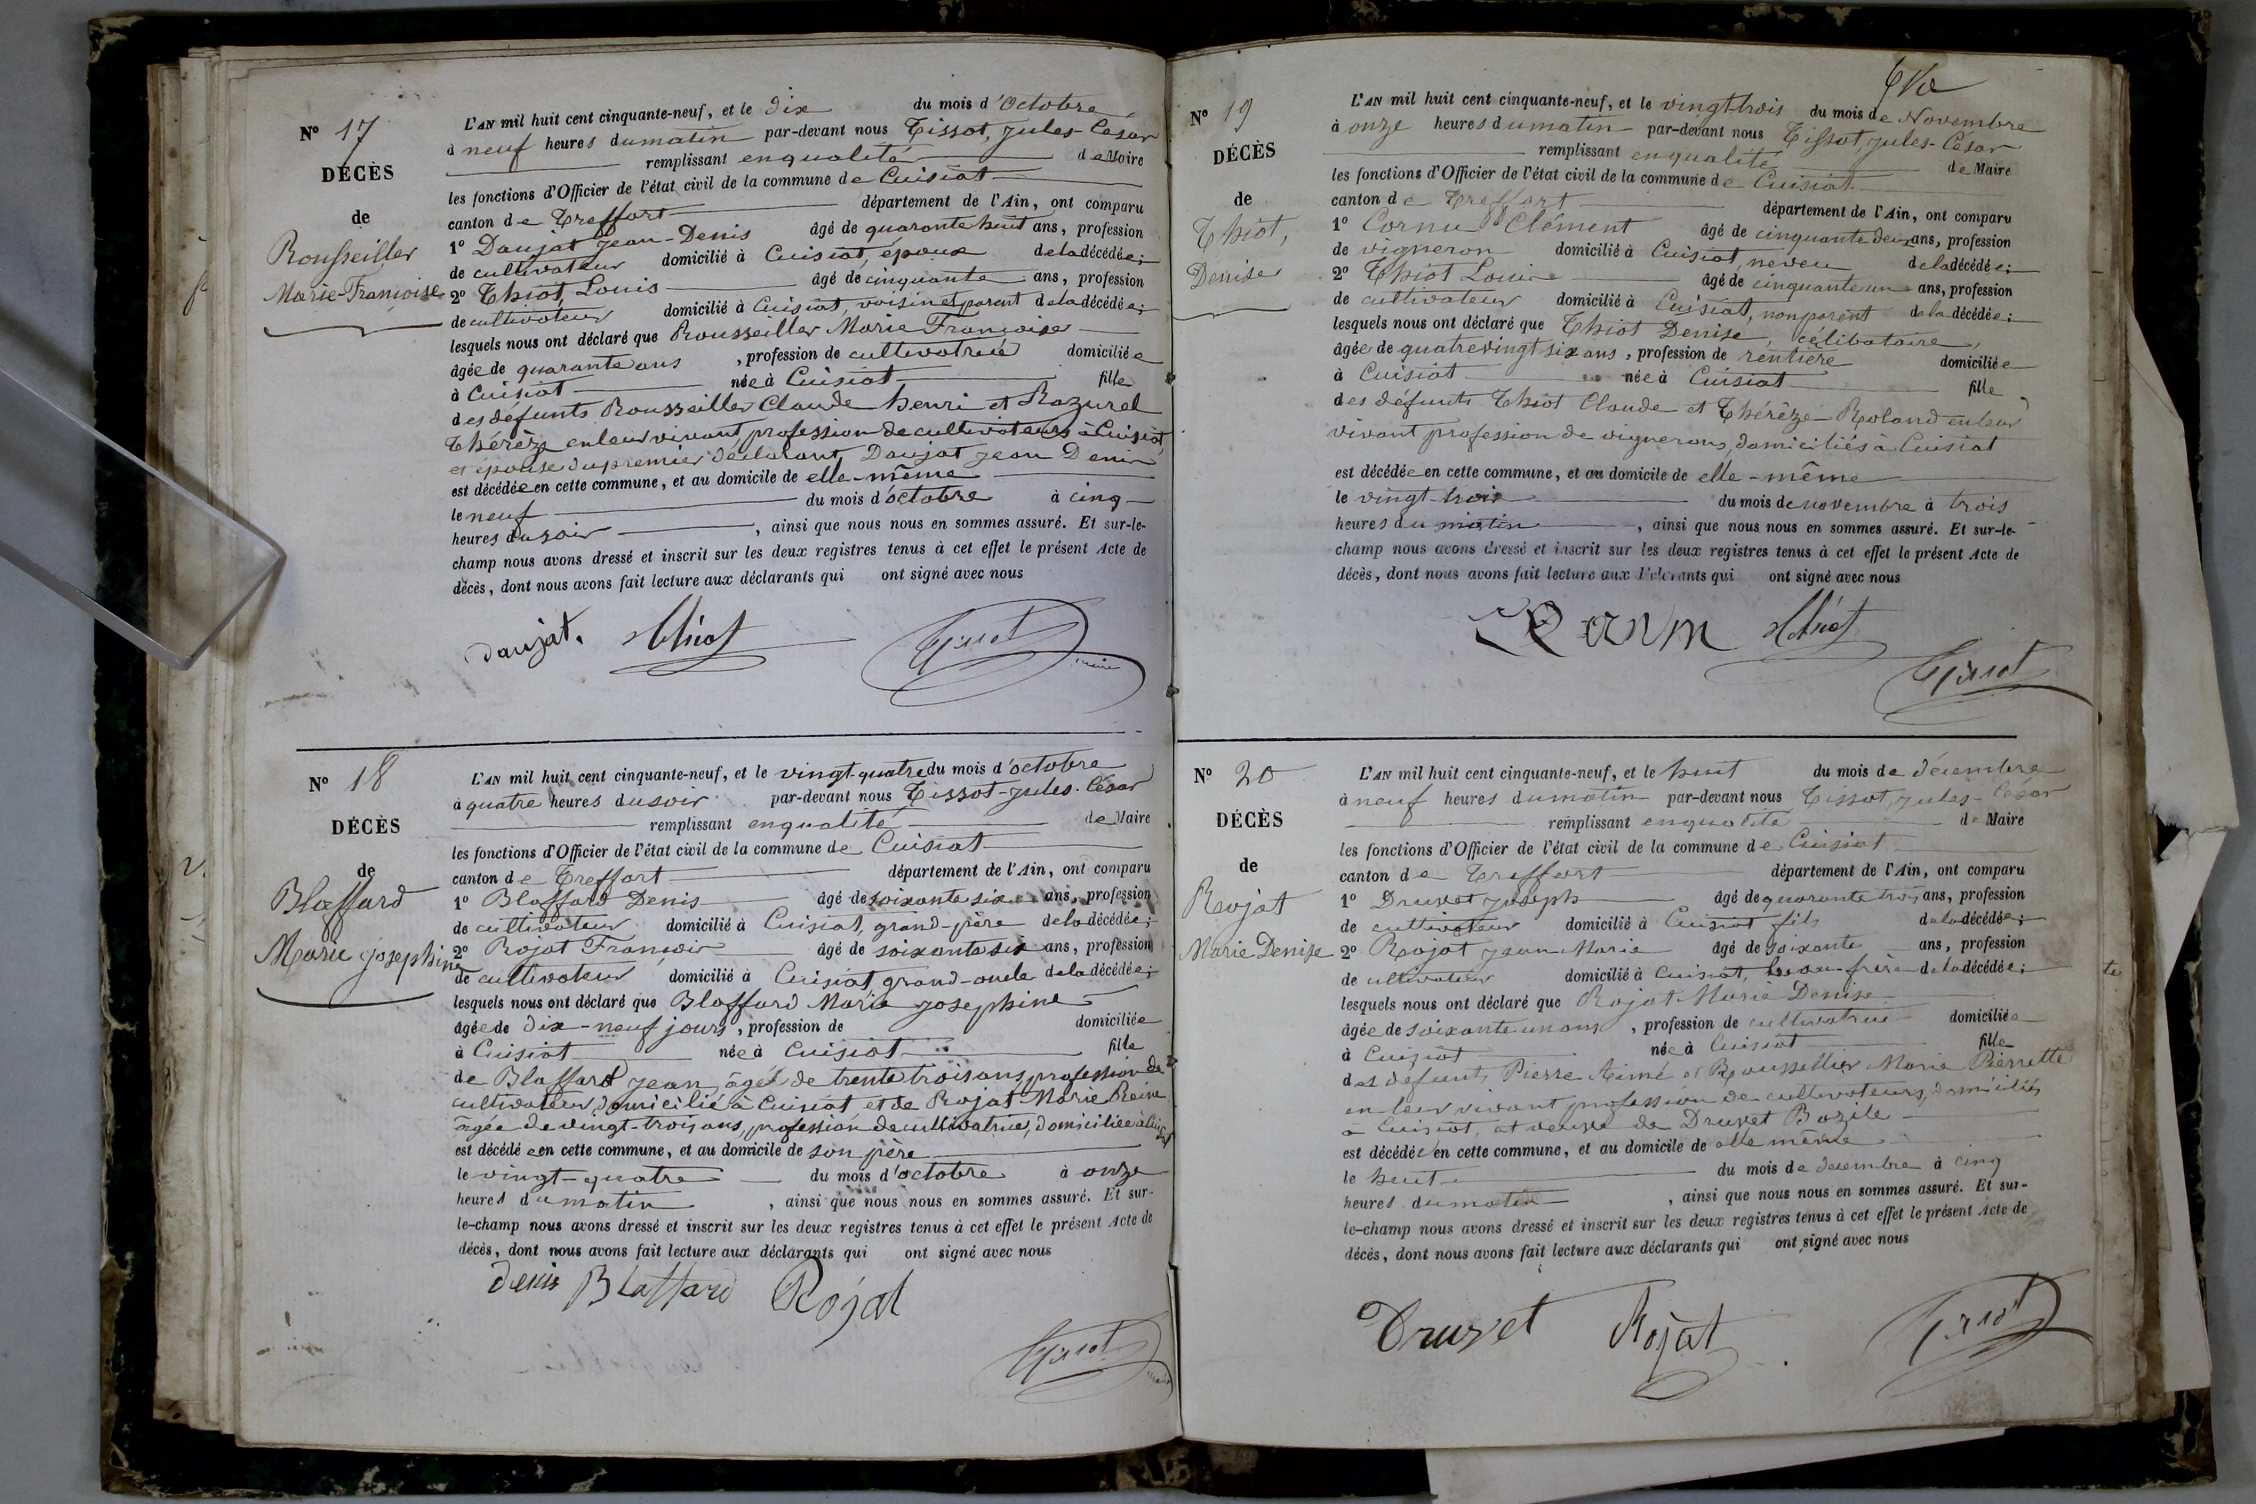 Nº 17
DÉCÈS
de
Rousseiller
Marie-Françoise
L'AN mil huit cent cinquante-neuf, et le dix du mois d'Octobre
à neuf heures du matin par-devant nous Tissot, Jules-César
remplissant en qualité de Maire
les fonctions d'Officier de l'état civil de la commune de Cuisiat
canton de Treffort département de l'Ain, ont comparu
1º Daujat Jean-Denis âgé de quarante huit ans, profession
de cultivateur domicilié à Cuisiat, époux de la décédée;
2º Thiot, Louis âgé de cinquante ans, profession
de cultivateur domicilié à Cuisiat, voisin et parent de la décédée;
lesquels nous ont déclaré que Rousseiller Marie Françoise
âgée de quarante ans, profession de cultivatrice domiciliée
à Cuisiat née à Cuisiat fille
des défunts Rousseiller Claude henri et Razurel
Thérèze en leur vivant, profession de cultivateurs à Cuisiat,
et épouse du premier déclarant Daujat Jean Denis
est décédée en cette commune, et au domicile de elle-même
le neuf du mois d'octobre à cinq
heures du soir, ainsi que nous nous en sommes assuré. Et sur-le-
champ nous avons dressé et inscrit sur les deux registres tenus à cet effet le présent Acte de
décès, dont nous avons fait lecture aux déclarants qui ont signé avec nous
daujat. Thiot Tissot
maire
Nº 18
DÉCÈS
de
Blaffard
Marie Josephine
L'AN mil huit cent cinquante-neuf, et le vingt-quatre du mois d'octobre
à quatre heures du soir par-devant nous Tissot-Jules-César
remplissant en qualité de Maire
les fonctions d'Officier de l'état civil de la commune de Cuisiat
canton de Treffort département de l'Ain, ont comparu
1º Blaffard Denis âgé de soixante six ans, profession
de cultivateur domicilié à Cuisiat, grand-père de la décédée;
2º Rojat François âgé de soixante six ans, profession
de cultivateur domicilié à Cuisiat grand-oncle de la décédée;
lesquels nous ont déclaré que Blaffard Marie Josephine
âgée de dix-neuf jours, profession de domiciliée
à Cuisiat née à Cuisiat fille
de Blaffard Jean, âgé de trente trois ans, profession de
cultivateur, domicilié à Cuisiat et de Rojat Marie Reine
âgée de vingt-trois ans, profession de cultivatrice, domiciliée à Cuisiat
est décédée en cette commune, et au domicile de son père
le vingt-quatre du mois d'octobre à onze
heures du matin, ainsi que nous nous en sommes assuré. Et sur-
le-champ nous avons dressé et inscrit sur les deux registres tenus à cet effet le présent Acte de
décès, dont nous avons fait lecture aux déclarants qui ont signé avec nous
denis Blaffard Rojat
Tissot
Nº 19
DÉCÈS
de
Thiot,
Denise
L'AN mil huit cent cinquante-neuf, et le vingt-trois du mois de Novembre
à onze heures du matin par-devant nous Tissot, Jules-César
remplissant en qualité de Maire
les fonctions d'Officier de l'état civil de la commune de Cuisiat
canton de Treffort département de l'Ain, ont comparu
1º Cornu Clément âgé de cinquante deux ans, profession
de vigneron domicilié à Cuisiat, neveu de la décédée;
2º Thiot Louis âgé de cinquante un ans, profession
de cultivateur domicilié à Cuisiat, non parent de la décédée;
lesquels nous ont déclaré que Thiot Denise, célibataire,
âgée de quatrevingt six ans, profession de rentière domiciliée
à Cuisiat née à Cuisiat fille
des défunts Thiot Claude et Thérèze Roland en leur
vivant profession de vignerons, domiciliés à Cuisiat
est décédée en cette commune, et au domicile de elle-même
le vingt-trois du mois de novembre à trois
heures du matin, ainsi que nous nous en sommes assuré. Et sur-le-
champ nous avons dressé et inscrit sur les deux registres tenus à cet effet le présent Acte de
décès, dont nous avons fait lecture aux déclarants qui ont signé avec nous
Thiot
Tissot
Nº 20
DÉCÈS
de
Rojat
Marie Denise
L'AN mil huit cent cinquante-neuf, et le huit du mois de décembre
à neuf heures du matin par-devant nous Tissot, Jules-César
remplissant en qualité de Maire
les fonctions d'Officier de l'état civil de la commune de Cuisiat
canton de Treffort département de l'Ain, ont comparu
1º Druvet Joseph âgé de quarante trois ans, profession
de cultivateur domicilié à Cuisiat fils de la décédée;
2º Rojat Jean Marie âgé de soixante ans, profession
de cultivateur domicilié à Cuisiat, beau-frère de la décédée;
lesquels nous ont déclaré que Rojat Marie Denise
âgée de soixante un ans, profession de cultivatrice domiciliée
à Cuisiat née à Cuisiat fille
des défunts Pierre Aimé et Roussellier Marie Pierrette
en leur vivant profession de cultivateurs, domiciliés
à Cuisiat, et veuve de Druvet Bazile
est décédée en cette commune, et au domicile de elle même
le huit du mois de decembre à cinq
heures du matin, ainsi que nous nous en sommes assuré. Et sur-
le-champ nous avons dressé et inscrit sur les deux registres tenus à cet effet le présent Acte de
décès, dont nous avons fait lecture aux déclarants qui ont signé avec nous
Druvet Rojat Tissot